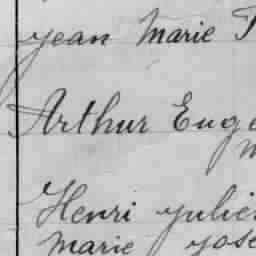 Jean Marie
Arthur Eug
Henri Julie
Marie Jose